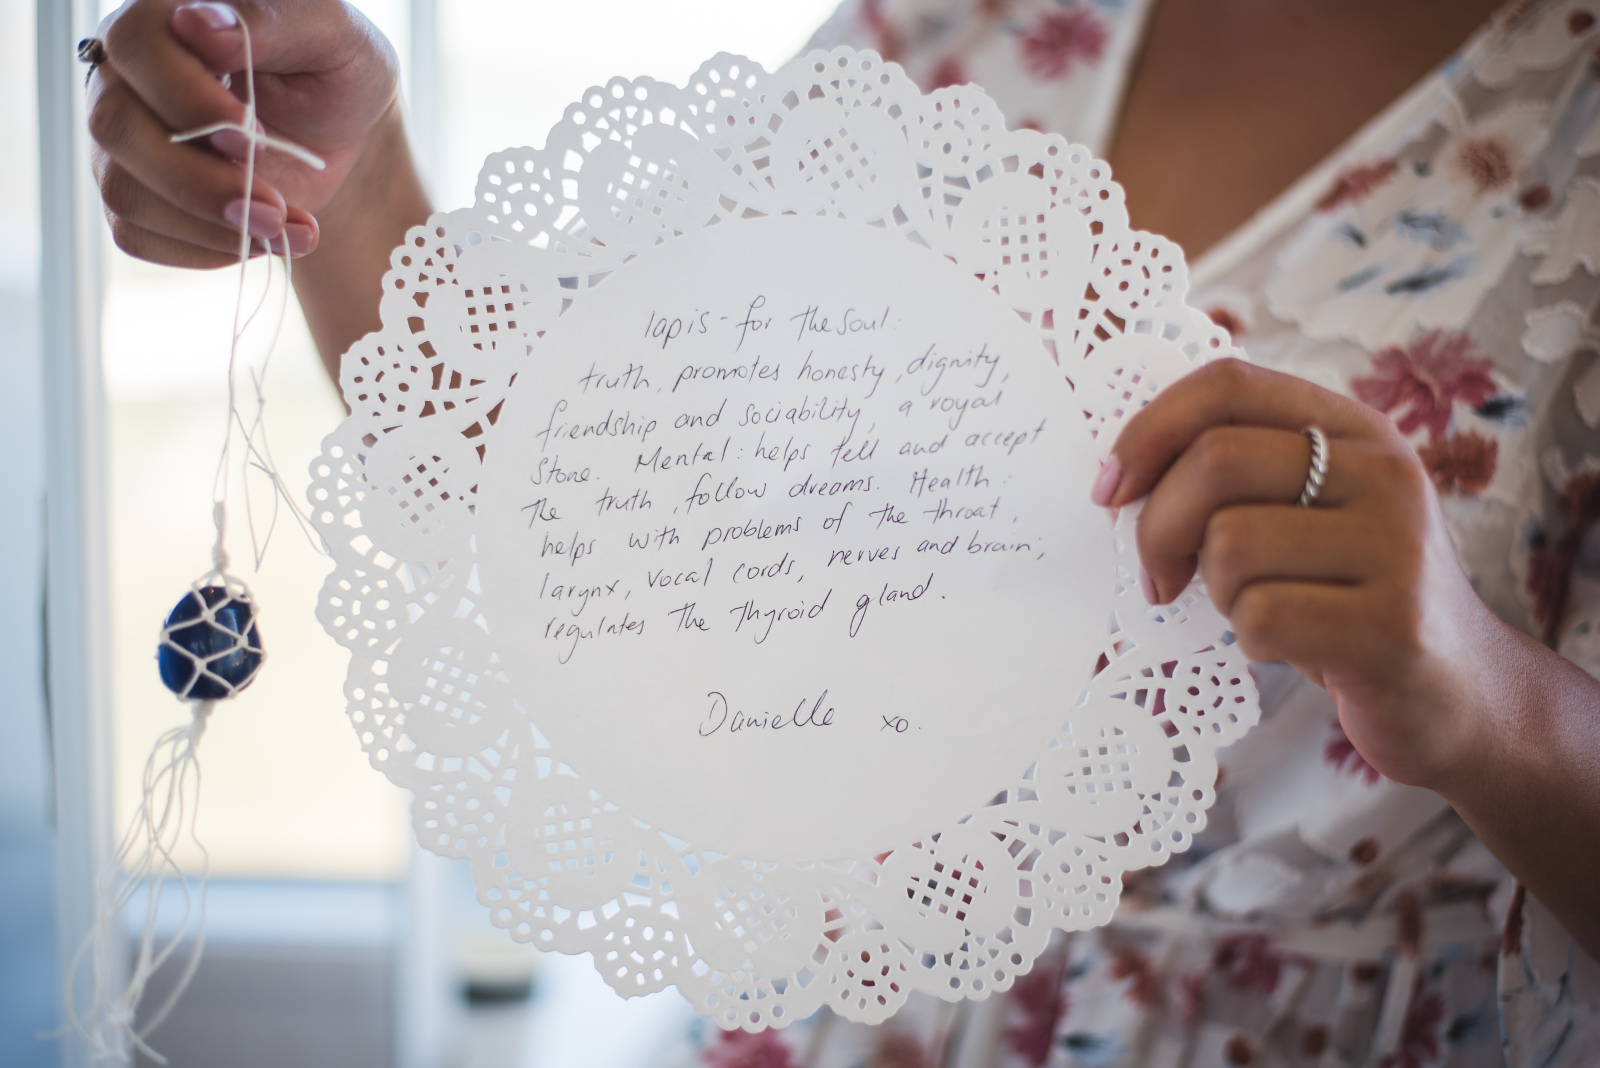 lapis - for the soul:
truth, promotes honesty, dignity,
friendship and sociability, a royal
stone. Mental: helps tell and accept
the truth, follow dreams. Health:
helps with problems of the throat,
larynx, vocal cords, nerves and brain;
regulates the thyroid gland.
Danielle xo.